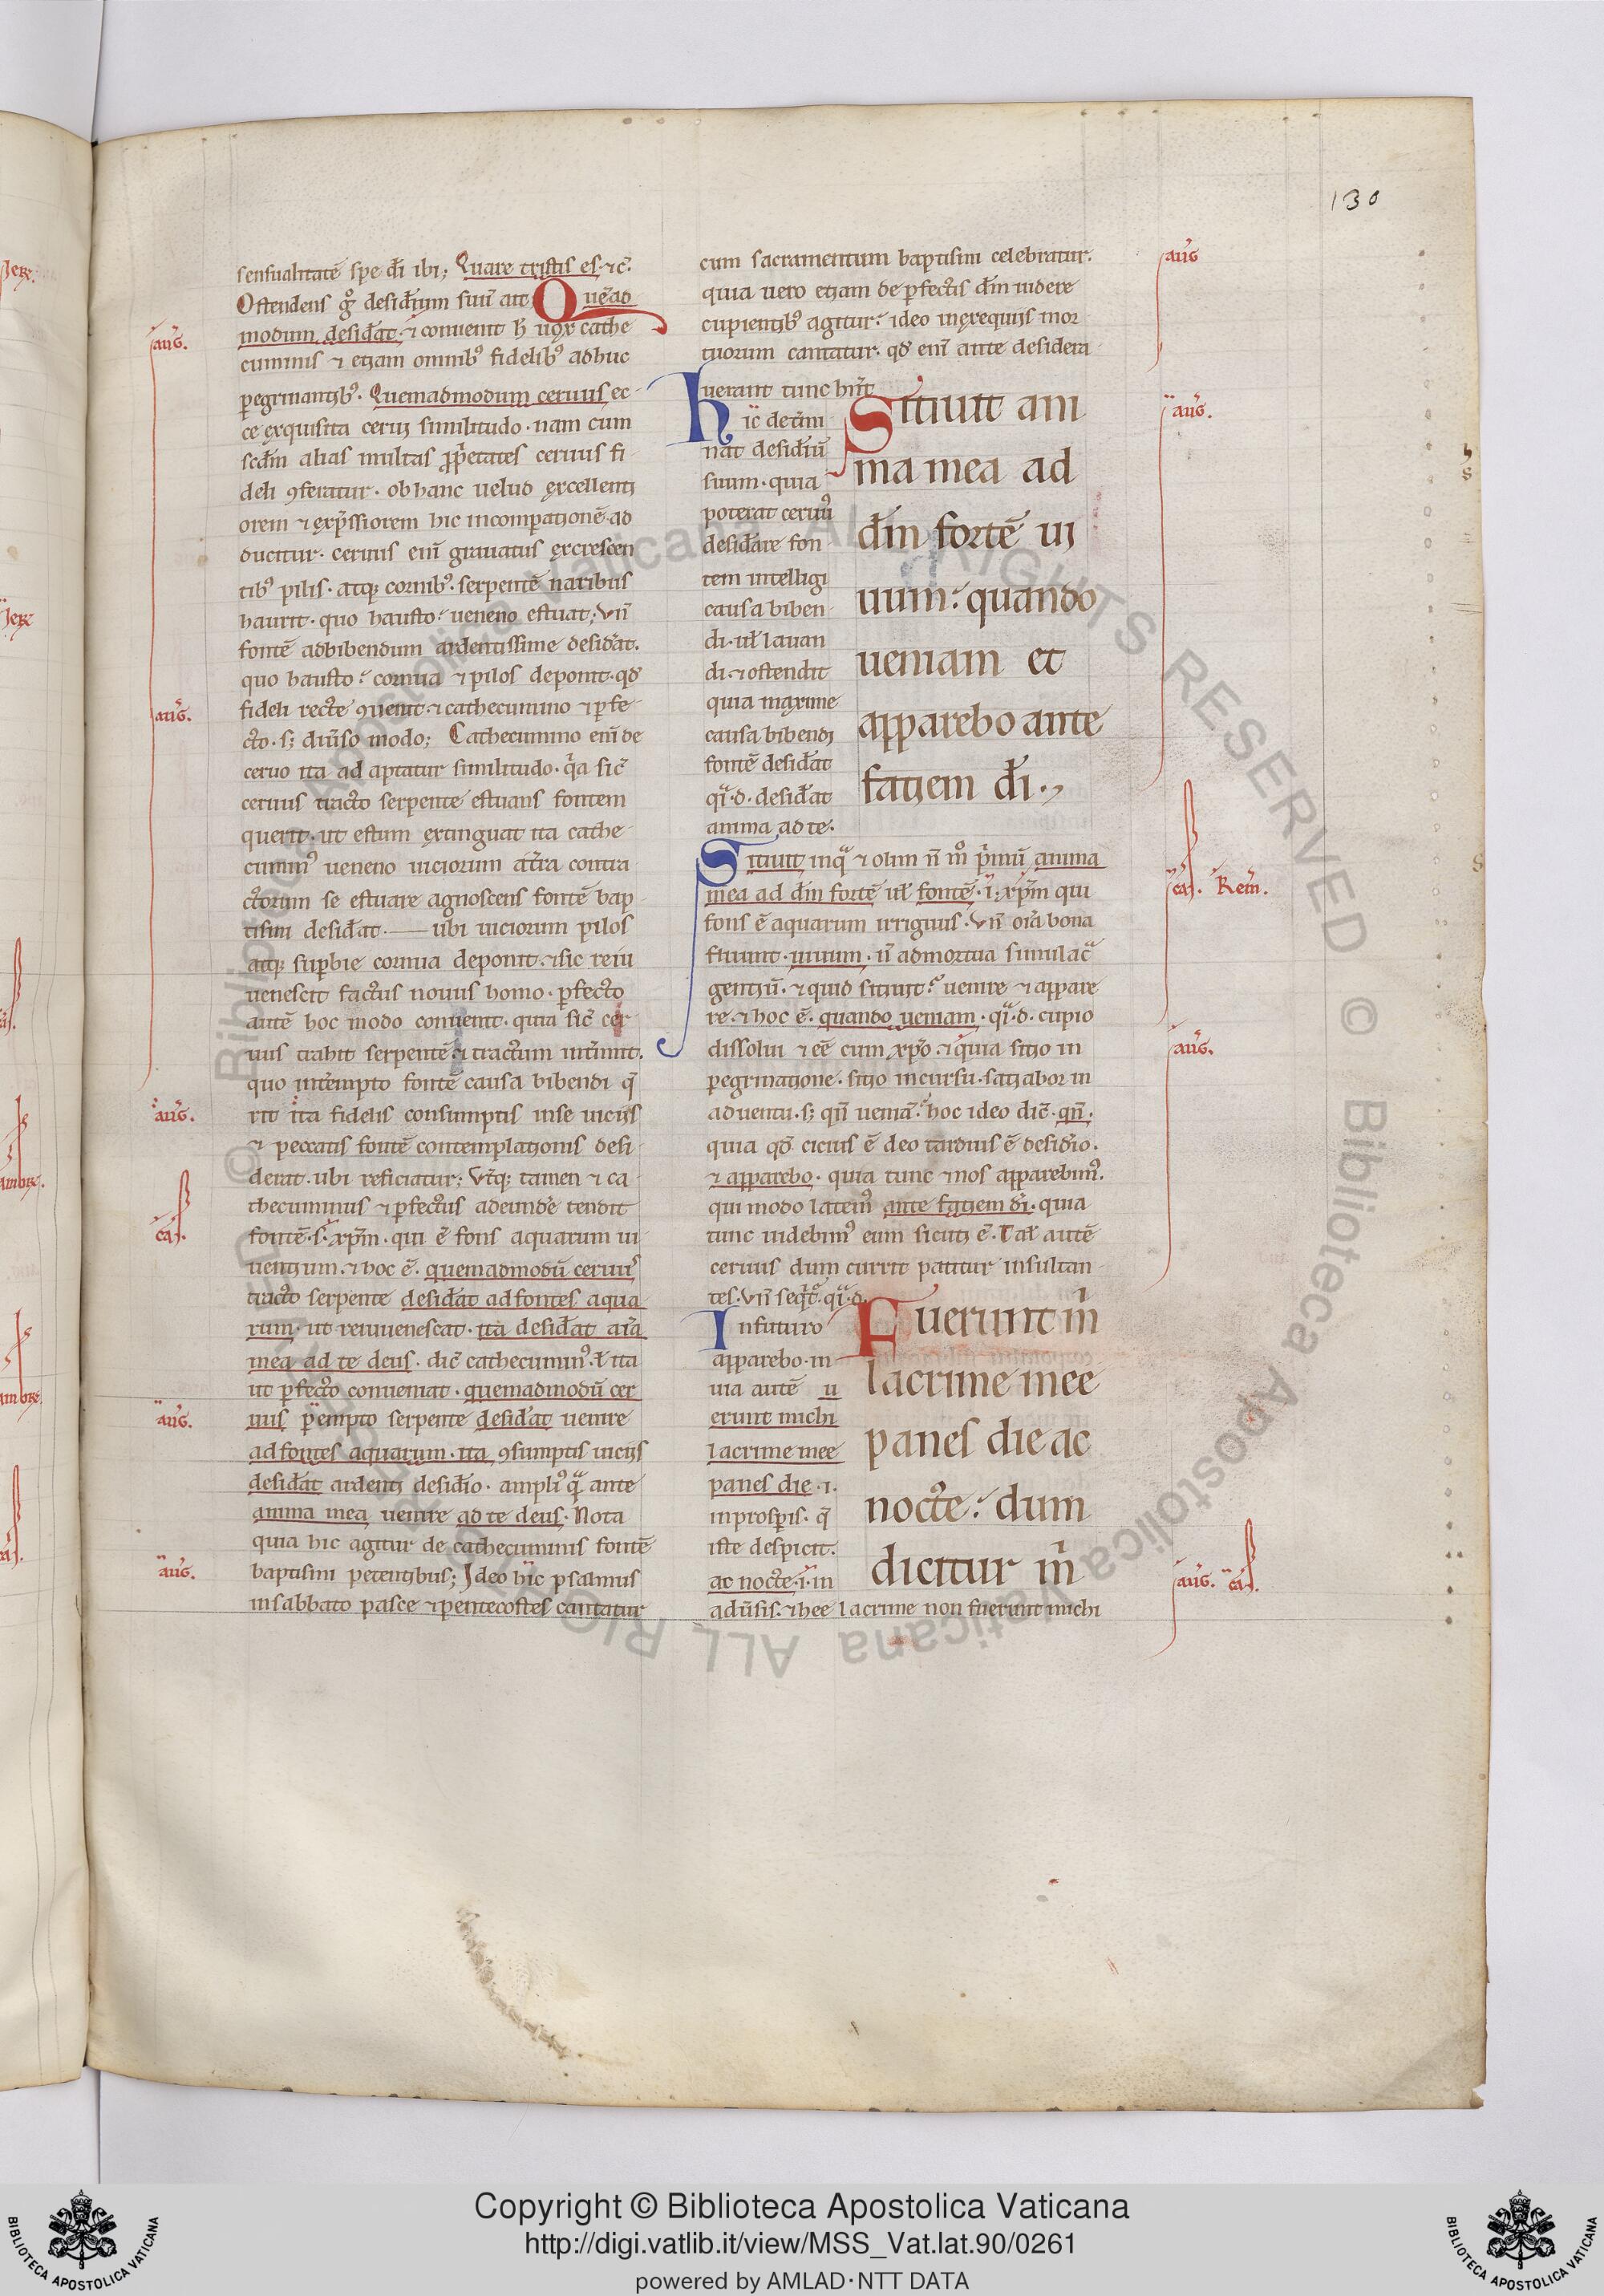 130
sensualitatē spe dī ibi; Quare tristis es ⁊c̄.
Ostendens gͦ desid̄ium suū ait Quēad
modum desid̄at ⁊ conuenit h̄ uox cathe
cuminis ⁊ etiam omnibꝰ fidelibꝰ adhuc
ꝑegrinantibꝰ. Quemadmodum ceruus ec
ce exquisita cerui similitudo. nam cum
scd̄m alias multas ꝓp̄etates ceruus fi
deli ꝯferatur. ob hanc uelud excellenti
orem ⁊ exp̄ssiorem hic incomꝑationē ad
ducitur. ceruus eni grauatus excrescen
tibꝰ pilis. atqꝫ cornibꝰ. serpentē naribus
haurit. quo hausto: ueneno estuat; vn̄
fontē adbibendum ardentissime desid̄at.
quo hausto: cornua ⁊ pilos deponit. qd̄
fideli recte ꝯuenit. ⁊ cathecumino ⁊ ꝑfe
cto. sꝫ diu̅so modo; Cathecumino eni de
ceruo ita ad aptatur similitudo. q̄a sic̄
ceruus tracto serpente estuans fontem
querit. ut estum extinguat ita cathe
cuminꝰ ueneno uiciorum at̄ra contra
ctorum se estuare agnoscens fontē bap
tismi desid̄at. ubi uiciorum pilos
atqꝫ suꝑbie cornua deponit. ⁊ sic reiu
uenescit factus nouus homo. ꝑfecto
autē hoc modo conuenit. quia sic̄ cer
uus trahit serpentē ⁊ tractum int̄imit.
quo int̄empto fontē causa bibendi q̄
rit ita fidelis consumptis inse uiciis
⁊ peccatis fontē contemplationis desi
derat. ubi reficiatur; Vt̄qꝫ tamen ⁊ ca
thecuminus ⁊ ꝑfectus adeunde tendit
fontē. s. xp̄m. qui ē fons aquarum ui
uentium. ⁊ hoc ē. quemadmodū ceruus
tracto serpente desid̄at ad fontes aqua
rum. ut reiuuenescat. ita desid̄at aīa
mea ad te deus. dic̄ cathecuminꝰ. ł ita
ut ꝑfecto conueniat. quemadmodū cer
uus ꝑempto serpente desid̄at uenire
ad fontes aquarum. ita ꝯsumptis uiciis
desid̄at ardenti desid̄io. ampliꝰ q̄ ante
anima mea uenire ad te deus. Nota
quia hic agitur de cathecuminis fontē
baptismi petentibus; Ideo hic psalmus
insabbato pasce ⁊ pentecostes cantatur
cum sacramentum baptismi celebratur.
quia uero etiam de ꝑfectis dm̄ uidere
cupientibꝰ agitur: ideo inexequiis mor
tuorum cantatur. qd̄ eni ante desidera
uerant tunc hn̄t
Hic det̄mi
nat desid̄iū
suum. quia
poterat ceruū
desid̄are fon
tem intelligi
causa biben
di. uł lauan
di. ⁊ ostendit
quia maxime
causa bibendi
fontē desid̄at
q̄i. d. desid̄at
anima ad te.
Sitiuit ani
ma mea ad
dm̄ fortē ui
uum: quando
ueniam et
apparebo ante
faciem dī.
Sitiuit inq̄ ⁊ olim n̄ mͦ p̄mū anima
mea ad dm̄ fortē uł fontē. i. xp̄m qui
fons ē aquarum irriguus. vn̄ oīa bona
fluunt. uiuum. n̄ admortua simulac̄
gentiū. ⁊ quid sitiuit: uenire ⁊ appare
re. ⁊ hoc ē. quando ueniam. q̄i. d. cupio
dissolui ⁊ eē cum xp̄o. ⁊ quia sitio in
ꝑegrinatione. sitio incursu. satiabor in
aduentu. sꝫ qn̄ ueniā: hoc ideo dic̄. qn̄.
quia qd̄ cicius ē deo tardius ē desid̄io.
⁊ apparebo. quia tunc ⁊ nos apparebimꝰ.
qui modo latemꝰ ante faciem dī. quia
tunc uidebimꝰ eum sicuti ē. Tał autē
ceruus dum currit patitur insultan
tes. vn̄ seq̄t̄. q̄i. d.
Infuturo
apparebo. in
uia autē u
erunt michi
lacrime mee
panes die .i.
in prosꝑis. q̄
iste despicit.
ac nocte .i. in
Fuerunt m̄
lacrime mee
panes die ac
nocte: dum
dicitur m̄
adu̅sis. ⁊ hee lacrime non fuerunt michi
aug.
aug.
aug.
cas.
aug.
aug.
aug
aug.
cas. Rem.
aug.
aug. cas.
Copyright © Biblioteca Apostolica Vaticana
http://digi.vatlib.it/view/MSS_Vat.lat.90/0261
powered by AMLAD·NTT DATA
BIBLIOTECA APOSTOLICA VATICANA
BIBLIOTECA APOSTOLICA VATICANA
© Biblioteca Apostolica Vaticana ALL RIGHTS RESERVED © Biblioteca Apostolica Vaticana ALL RIGHTS RESERVED